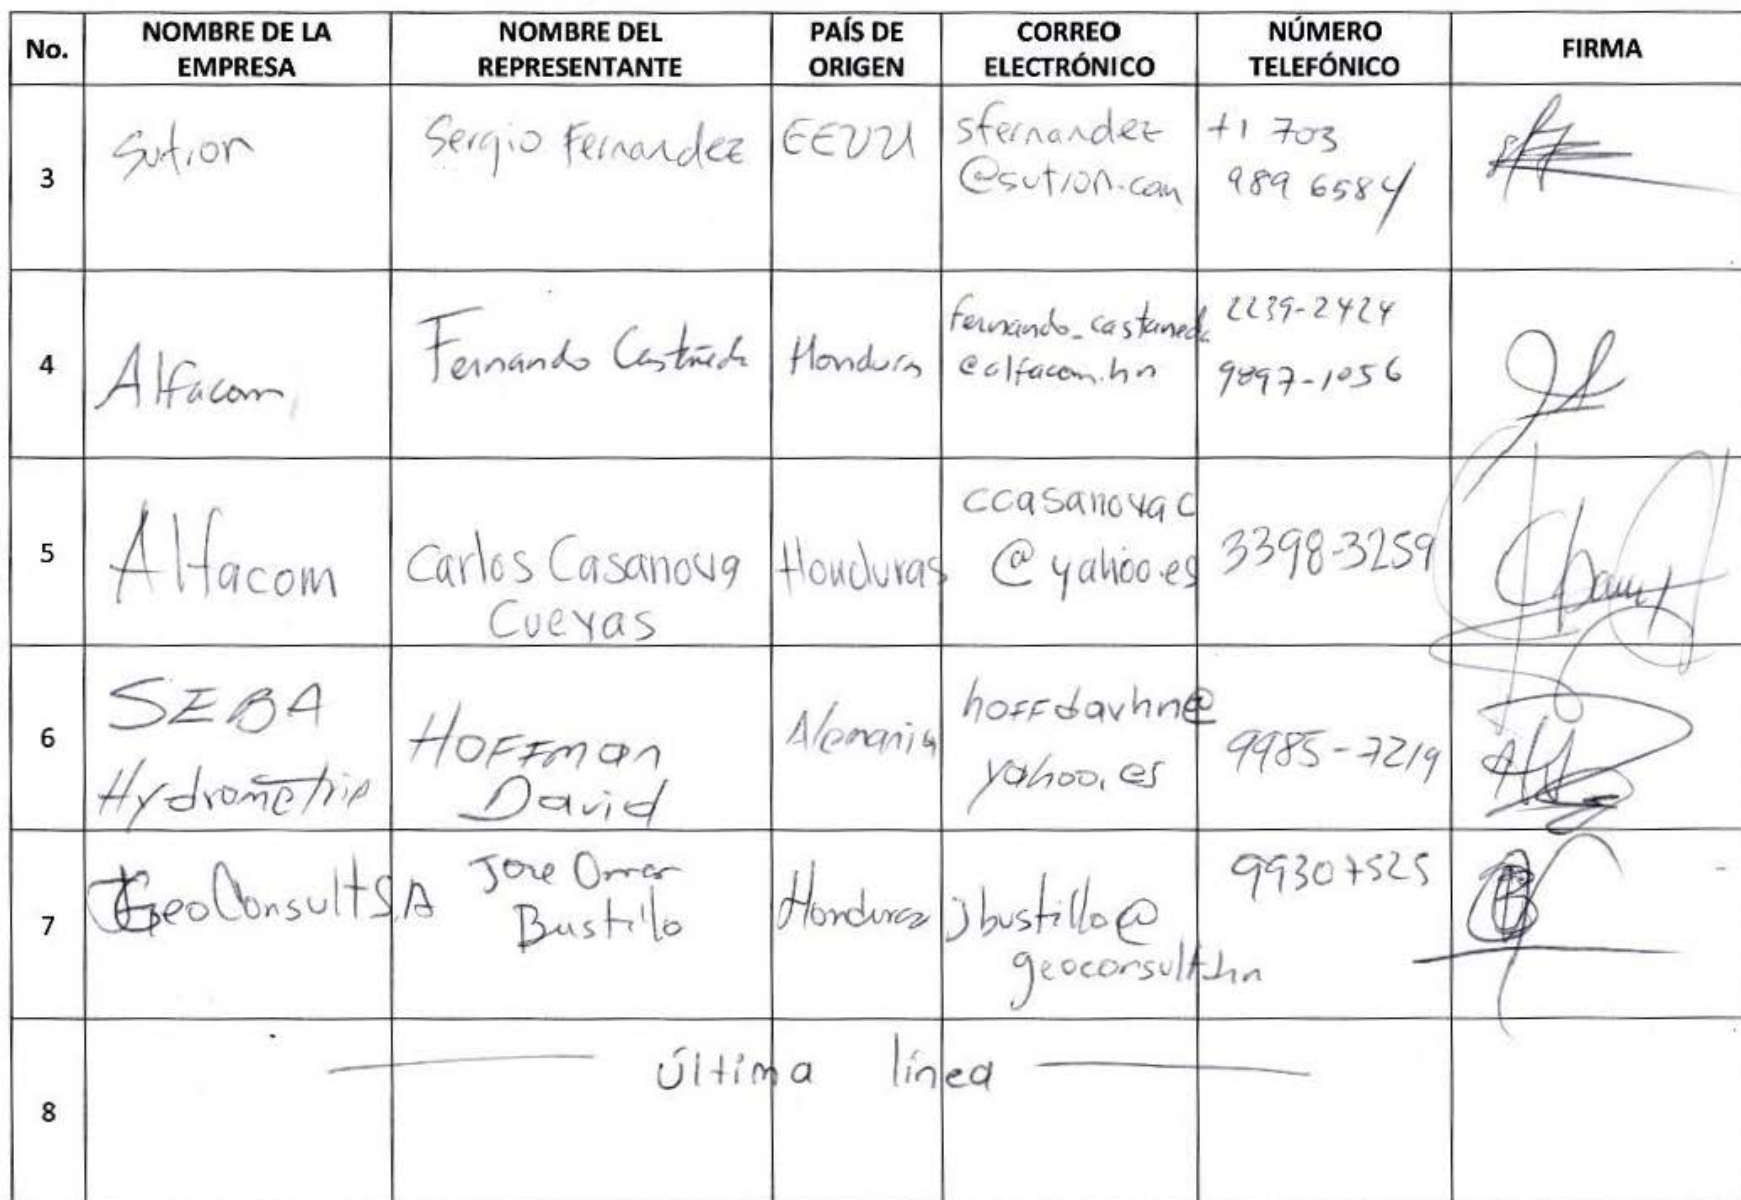 No. NOMBRE DE LA EMPRESA NOMBRE DEL REPRESENTANTE PAÍS DE ORIGEN CORREO ELECTRÓNICO NÚMERO TELEFÓNICO FIRMA
3 Sutron Sergio Fernandez EEUU sfernandez
@sutron.com +1 703
989 6584
4 Alfacom Fernando Castañeda Honduras fernando_castaneda
@alfacom.hn 2239-2424
9897-1056
5 Alfacom Carlos Casanova
Cuevas Honduras ccasanovac
@yahoo.es 3398-3259
6 SEBA
Hydrometrie HOFFman
David Alemania hoffdavhn@
yahoo.es 9985-7219
7 GeoConsult S.A Jose Omar
Bustillo Honduras jbustillo@
geoconsult.hn 99307525
8 última línea